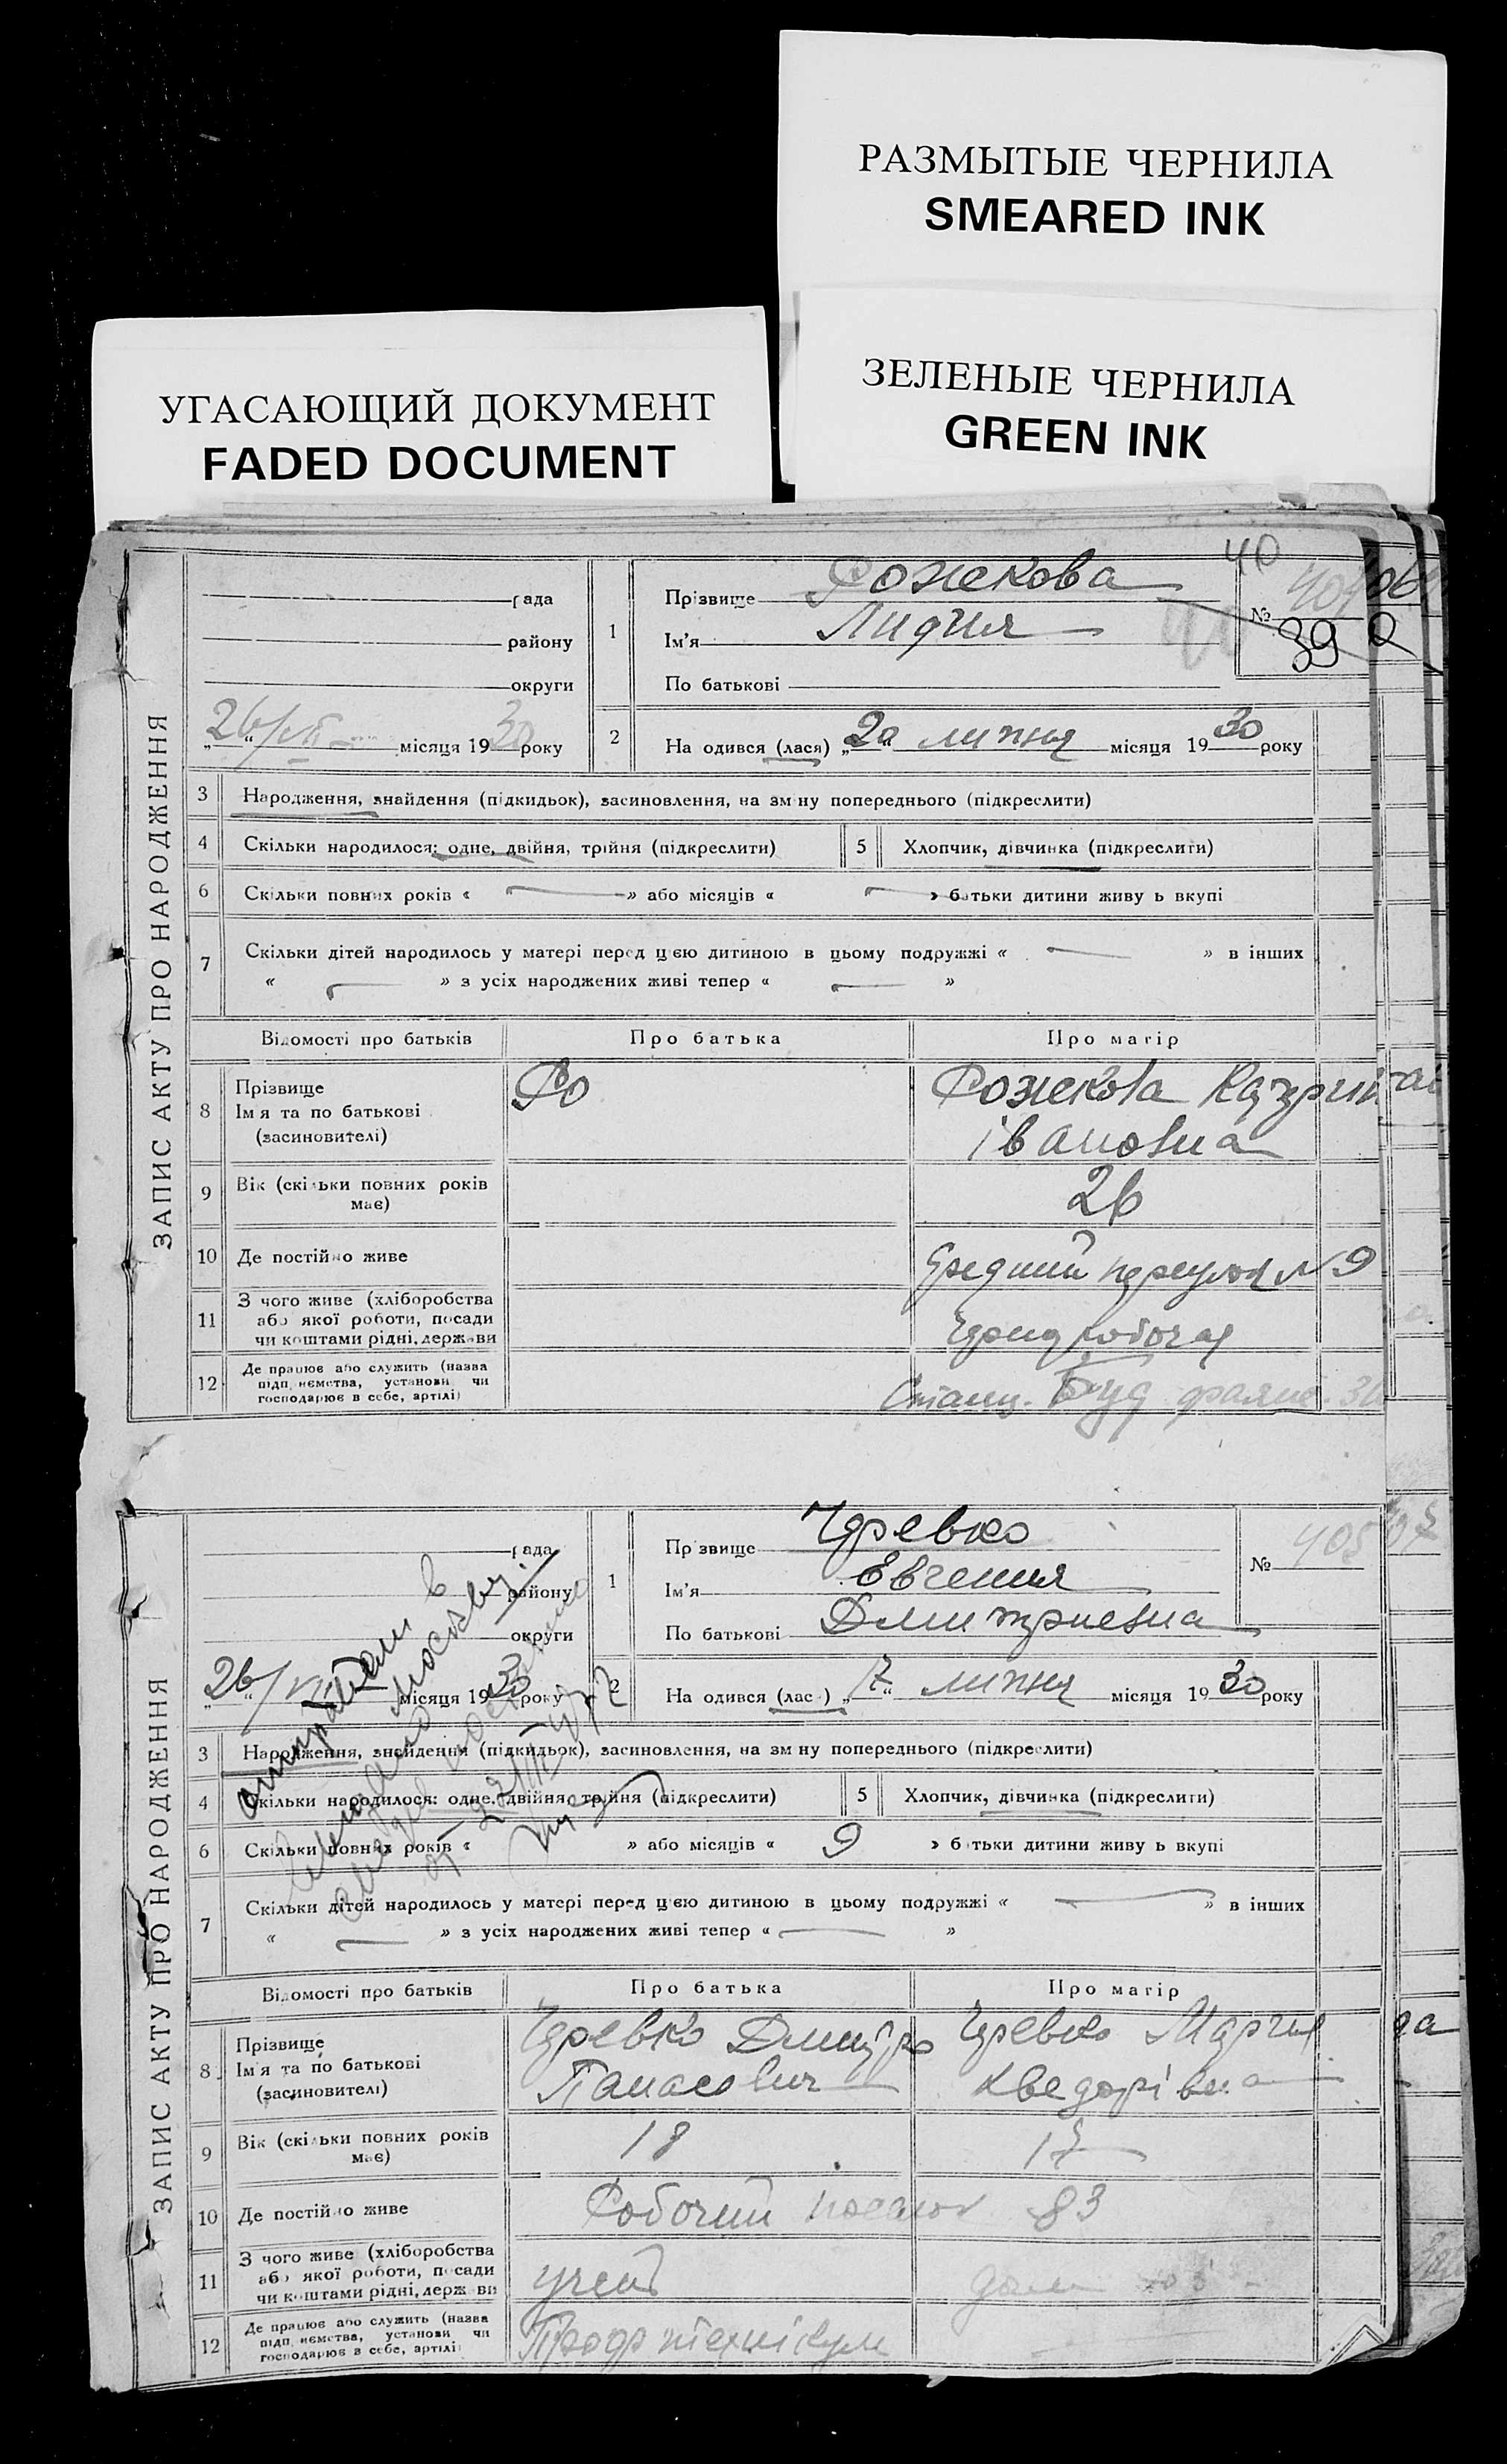 РАЗМЫТЫЕ ЧЕРНИЛА
SMEARED INK
ЗЕЛЕНЫЕ ЧЕРНИЛА
GREEN INK
УГАСАЮЩИЙ ДОКУМЕНТ
FADED DOCUMENT
ЗАПИС АКТУ ПРО НАРОДЖЕННЯ
рада
району
округи
26/VII місяця 1930 року
40
1 Прізвище Рожекова
Ім'я Лидия
По батькові
№ 404
39
2 На одився (лася) „20“ липня місяця 1930 року
3 Народження, знайдення (підкидьок), засиновлення, на зм ну попереднього (підкреслити)
4 Скільки народилося: одне, двійня, трійня (підкреслити)
5 Хлопчик, дівчинка (підкреслити)
6 Скільки повних років « » або місяців « » батьки дитини живу ь вкупі
7 Скільки дітей народилось у матері перед цією дитиною в цьому подружжі « » в інших
« » з усіх народжених живі тепер « »
Відомості про батьків Про батька Про матір
8 Прізвище
Ім'я та по батькові
(засиновителі)
Ро
Рожекова
івановна
9 Вік (скільки повних років
має)
26
10 Де постійно живе
№ 9
11 З чого живе (хліборобства
або якої роботи, посади
чи коштами рідні, держави
12 Де працює або служить (назва
підп иємства, установи чи
господарює в себе, артілі)
Станц. Буд
ЗАПИС АКТУ ПРО НАРОДЖЕННЯ
рада
району
округи
26/VII місяця 1930 року
1 Пр звище Черевко
Ім'я Евгения
По батькові Дмитриевна
№ 405
2 На одився (лас ) „7“ липня місяця 1930 року
3 Народження, знайдення (підкидьок), засиновлення, на зм ну попереднього (підкреслити)
4 Скільки народилося: одне, двійня, трійня (підкреслити)
5 Хлопчик, дівчинка (підкреслити)
6 Скільки повних років « » або місяців « 9 » б тьки дитини живу ь вкупі
7 Скільки дітей народилось у матері перед цією дитиною в цьому подружжі « » в інших
« » з усіх народжених живі тепер « »
Відомості про батьків Про батька Про матір
8 Прізвище
Ім'я та по батькові
(засиновителі)
Черевко Дмитро
Панасович
Черевко Мария
Хведорівна
9 Вік (скільки повних років
має)
18
17
10 Де постійно живе
Робочий поселок 83
11 З чого живе (хліборобства
або якої роботи, посади
чи коштами рідні, держ ви
учень
12 Де працює або служить (назва
підп иємства, установи чи
господарює в себе, артілі
технікум